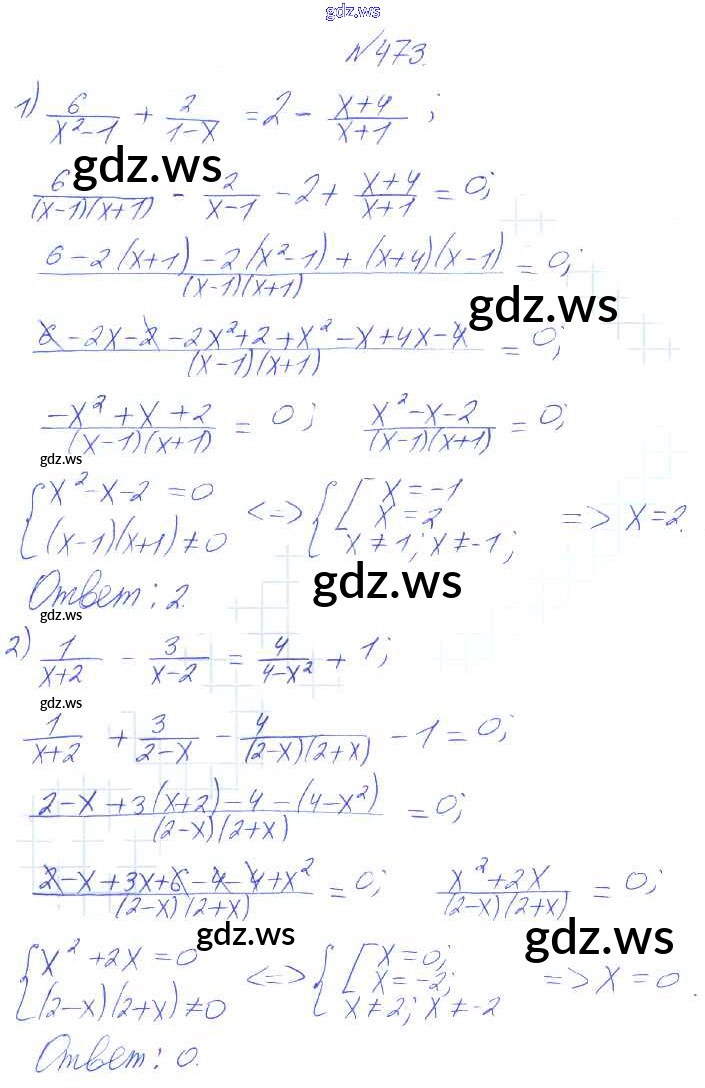 gdz.ws
№473.
1) 6/(x²-1) + 2/(1-x) = 2 - (x+4)/(x+1);
gdz.ws
6/((x-1)(x+1)) - 2/(x-1) - 2 + (x+4)/(x+1) = 0;
(6-2(x+1)-2(x²-1)+(x+4)(x-1))/((x-1)(x+1)) = 0;
gdz.ws
(6-2x-2-2x²+2+x²-x+4x-4)/((x-1)(x+1)) = 0;
(-x²+x+2)/((x-1)(x+1)) = 0; (x²-x-2)/((x-1)(x+1)) = 0;
gdz.ws
{ x²-x-2=0 <=> { [ x=-1
x=2
(x-1)(x+1)≠0 x≠1; x≠-1; => x=2.
gdz.ws
Ответ: 2.
gdz.ws
2) 1/(x+2) - 3/(x-2) = 4/(4-x²) + 1;
gdz.ws
1/(x+2) + 3/(2-x) - 4/((2-x)(2+x)) - 1 = 0;
(2-x+3(x+2)-4-(4-x²))/((2-x)(2+x)) = 0;
(2-x+3x+6-4-4+x²)/((2-x)(2+x)) = 0; (x²+2x)/((2-x)(2+x)) = 0;
gdz.ws
gdz.ws
{ x²+2x=0 <=> { [ x=0;
x=-2;
(2-x)(2+x)≠0 x≠2; x≠-2 => x=0.
gdz.ws
Ответ: 0.